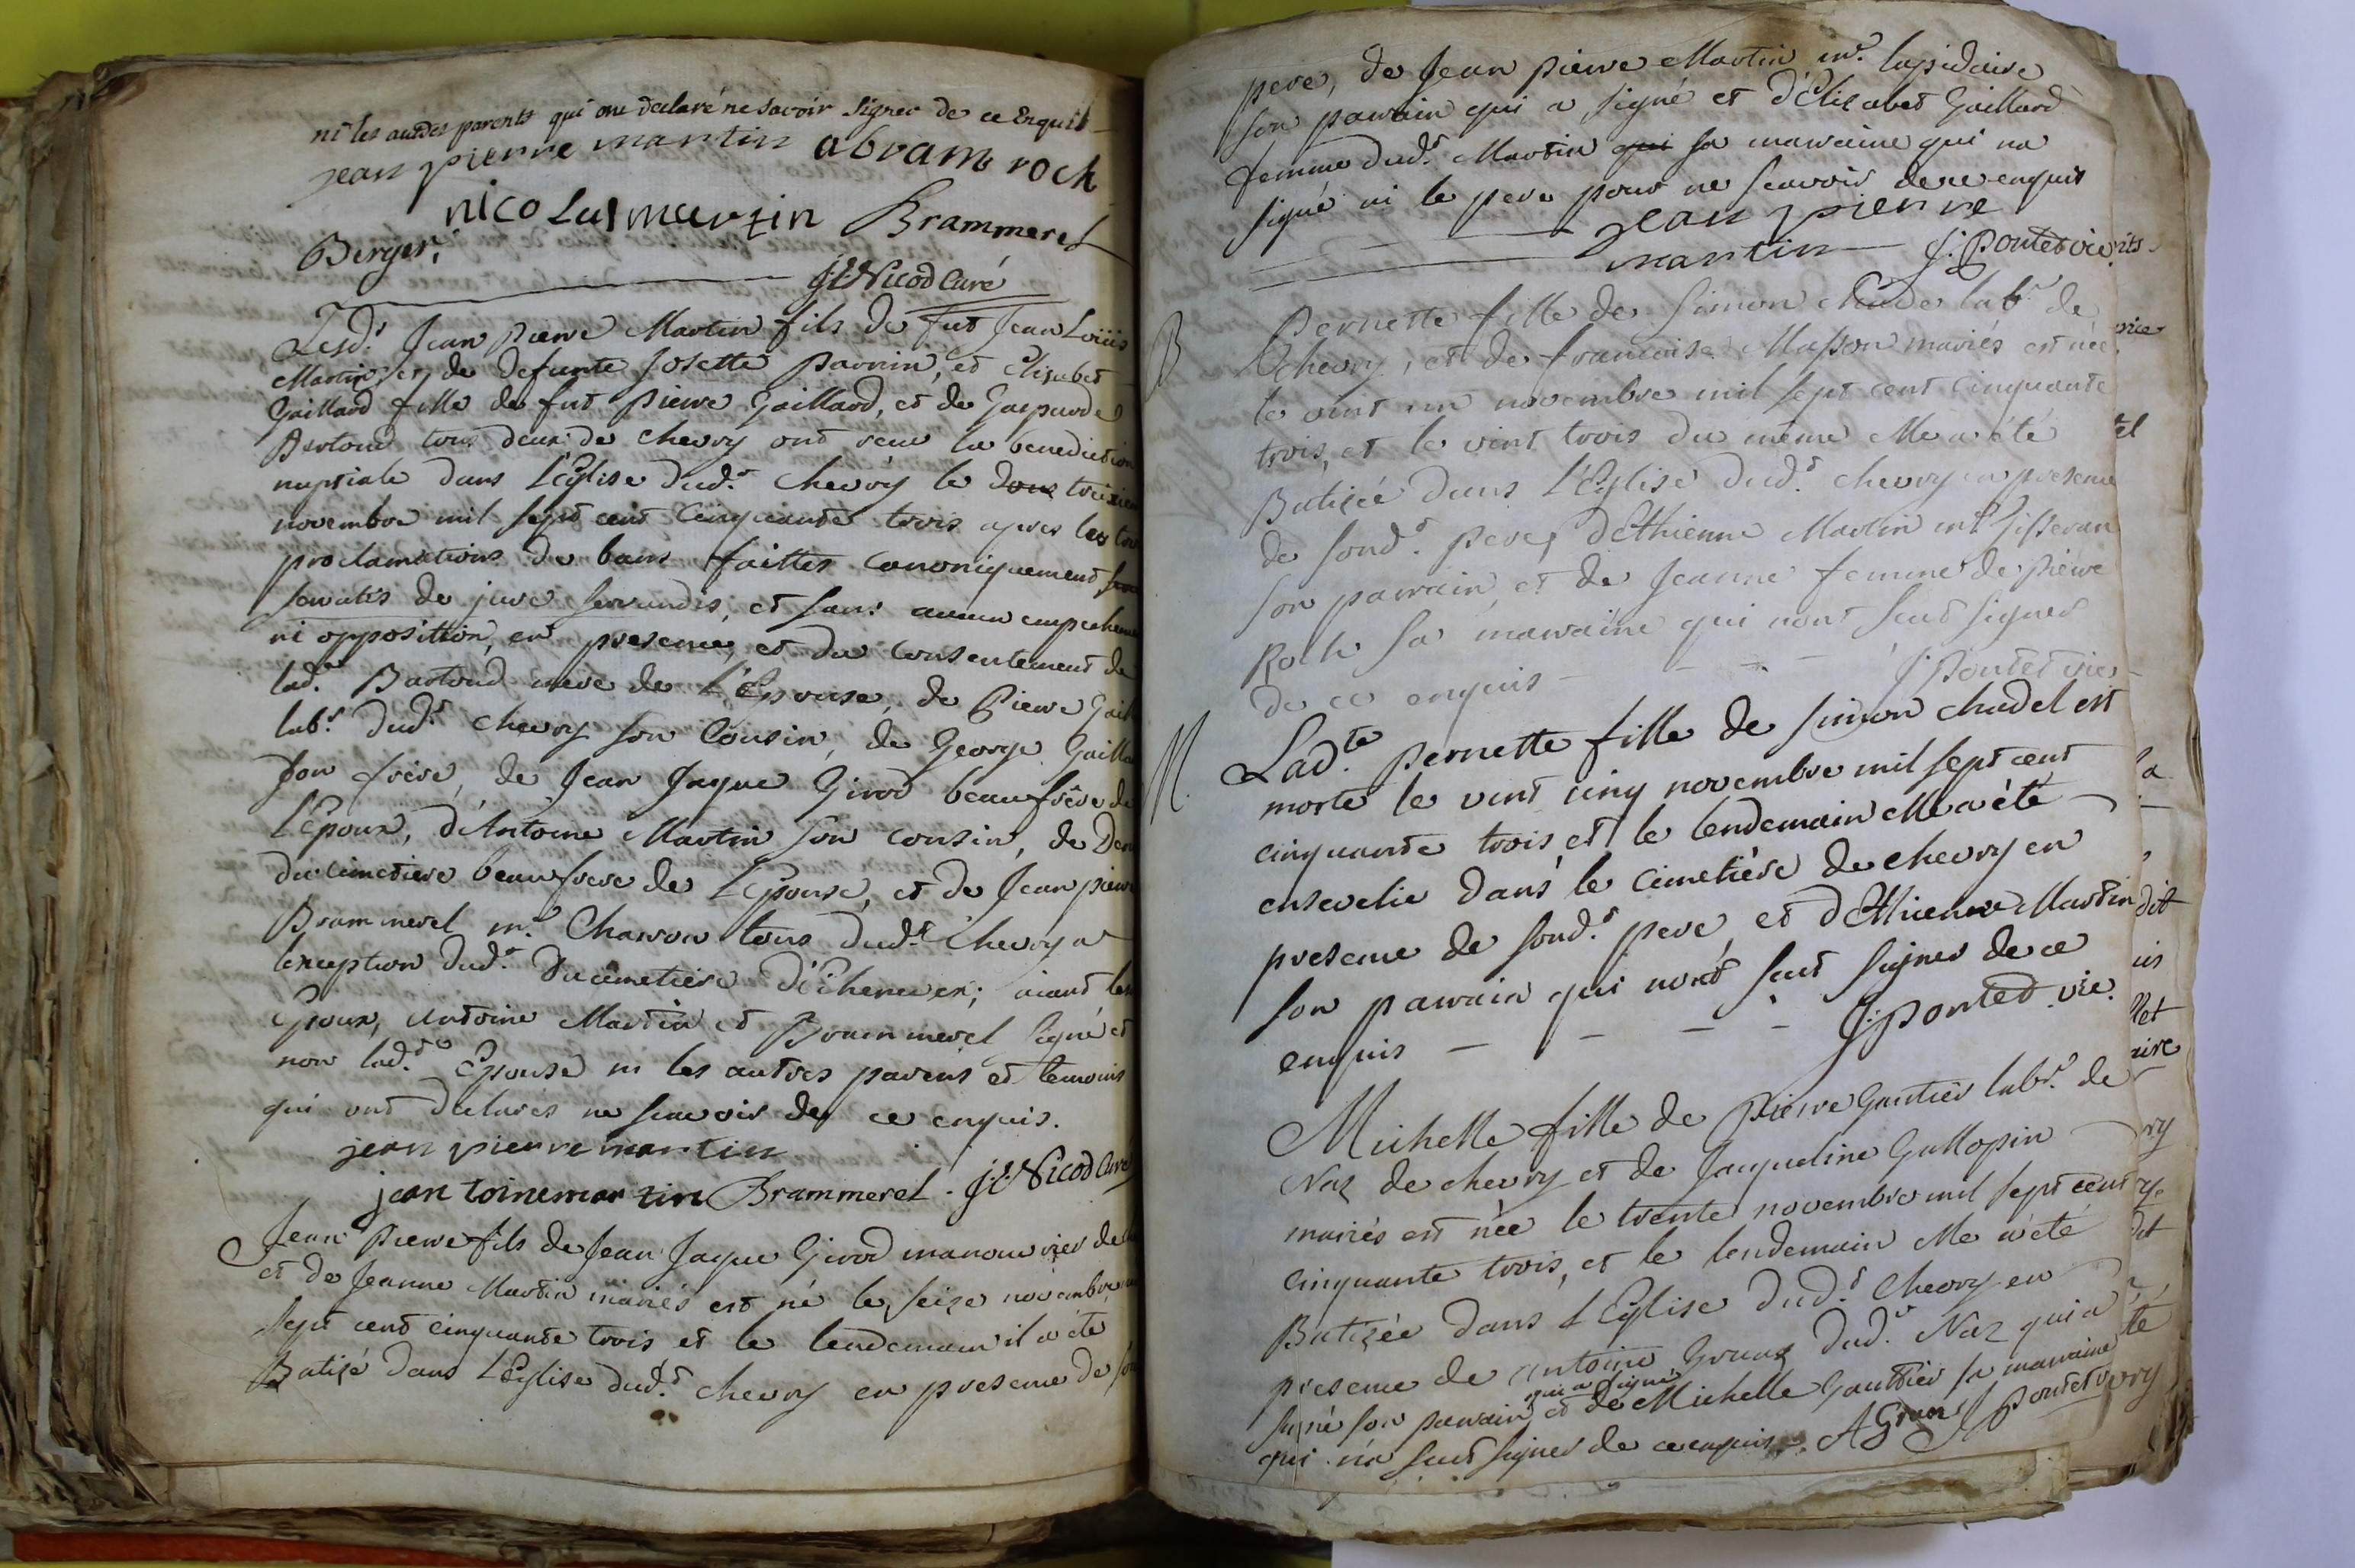 ni les autres parents qui ont declaré ne savoir signer de ce Enquis
jean pierre martin abram roch
nicolas martin Brammerel
Berger,
Nicod Curé
Lesd.s Jean Pierre Martin fils de fut Jean Loüis
Martin et de defunte Josette Parrin, et Elisabet
Gaillard fille de fut Pierre Gaillard, et de Gasparde
Bertoud tous deux de chevry ont receu la benediction
nuptiale dans l'Eglise dud.t Chevry le
novembre mil sept cent cinquante trois apres les
proclamations de bans faittes canoniquement
servatis de jure servandis, et sans aucun
ni opposition, en presence, et du consentement de
lad.e Bartoud mere de l'Epouse, de Pierre
lab.r dud.t chevry son Cousin, de George
son frère, de Jean Jaque Girod beaufrère de
l'Epoux, d'Antoine Martin son cousin, de
Ducimetiere beaufrere de l'Epouse, et de Jean pierre
Brammerel m.e Charon tous dud.t Chevry a
lexception dud.t Ducimetiere d'Echenevex; aiant les
Epoux, Antoine Martin et Brammerel signé et
non lad.te Epouse ni les autres parens et temoins
qui ont declarés ne scavoir de ce enquis.
jean pierre martin
jean toine martin Brammerel . Nicod Curé
Jean Pierre fils de Jean Jaque Girod manouvrier de
et de Jeanne Martin mariés est né le seize novembre
sept cent cinquante trois et le lendemain il a été
Batizé dans l'Eglise dud.t chevry en presence de
pere, de Jean pierre Martin m.e lapidaire
son parrain qui a signé et d'Elizabet Gaillard
femme dud.t Martin qui sa marraine qui na
signé ni le pere pour ne scavoir de ce enquis
jean pierre
martin J: Pontet vic
B
Pernette fille de Simon Chudel lab.r de
Chevry, et de francoise Masson mariés est née
le vint un novembre mil sept cent cinquante
trois, et le vint trois du même elle a été
Batizée dans l'Eglise dud.t chevry en presence
de sond.t pere, d'Ethienne Martin m.e
son parrain et de Jeanne femme de Pierre
Roch sa marraine qui n'ont sceut signer
de ce enquis - - - J: Pontet vic
M.
Lad.te Pernette fille de Simon chudel est
morte le vint cinq novembre mil sept cent
cinquante trois et le lendemain elle a été
ensevelie dans le cimetière de chevry en
presence de sond.t pere, et d'Ethienne Martin
son parrain qui n'ont sceut signer de ce
enquis - - - J: Pontet vic.
Michelle fille de Pierre Gautier lab.r de
Naz de chevry et de Jaqueline Gallopin
mariés est née le trente novembre mil sept cent
cinquante trois, et le lendemain elle a été
Batizée dans l'Eglise dud.t Chevry en
presence de Antoine Grunz dud.t Naz qui a
qui a signé
signé son parrain et de Michelle Gautier sa marraine
qui n'a sceut signer de ce enquis. A Grunz J Pontet